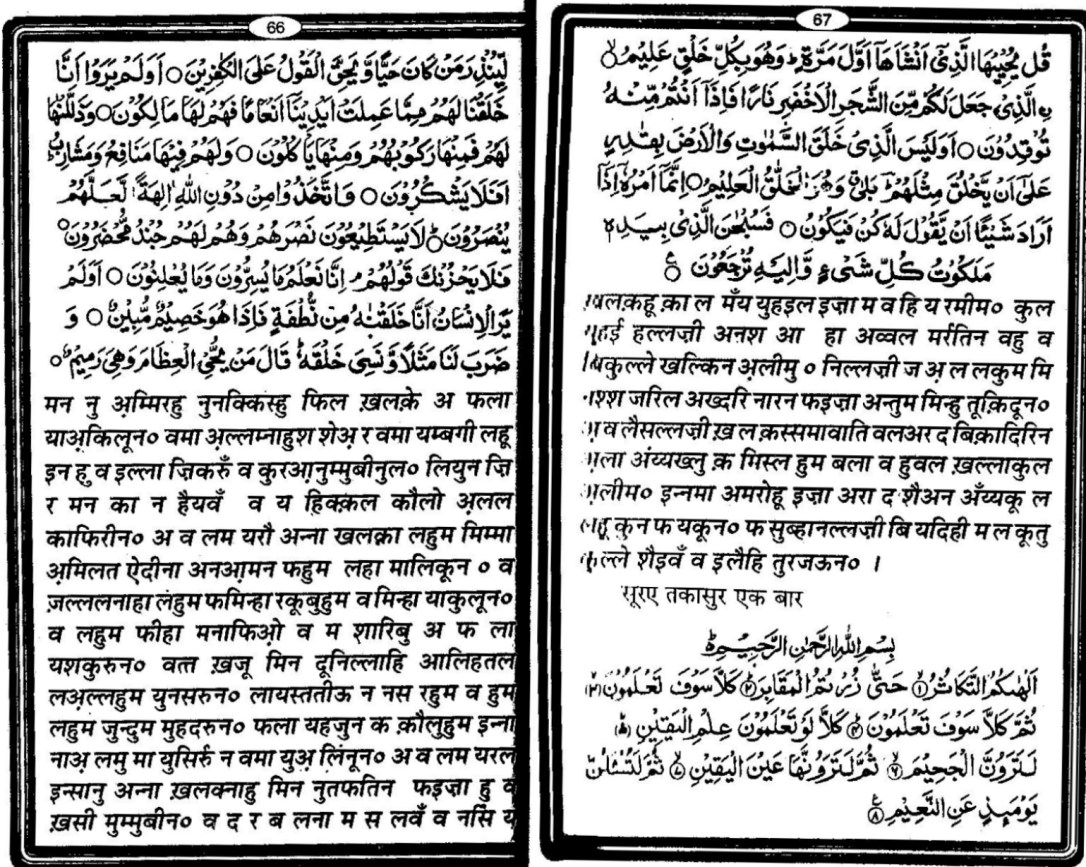 66
لِّيُنْذِرَ مَنْ كَانَ حَيًّا وَّيَحِقَّ الْقَوْلُ عَلَى الْكٰفِرِيْنَ○ اَوَلَمْ يَرَوْا اَنَّا
خَلَقْنَا لَهُمْ مِّمَّا عَمِلَتْ اَيْدِيْنَا اَنْعَامًا فَهُمْ لَهَا مَالِكُوْنَ○ وَذَلَّلْنٰهَا
لَهُمْ فَمِنْهَا رَكُوْبُهُمْ وَمِنْهَا يَاْكُلُوْنَ○ وَلَهُمْ فِيْهَا مَنَافِعُ وَمَشَارِبُ
اَفَلَا يَشْكُرُوْنَ○ وَاتَّخَذُوْا مِنْ دُوْنِ اللّٰهِ اٰلِهَةً لَّعَلَّهُمْ
يُنْصَرُوْنَ○ لَا يَسْتَطِيْعُوْنَ نَصْرَهُمْ وَهُمْ لَهُمْ جُنْدٌ مُّحْضَرُوْنَ○
فَلَا يَحْزُنْكَ قَوْلُهُمْ اِنَّا نَعْلَمُ مَا يُسِرُّوْنَ وَمَا يُعْلِنُوْنَ○ اَوَلَمْ
يَرَ الْاِنْسَانُ اَنَّا خَلَقْنٰهُ مِنْ نُّطْفَةٍ فَاِذَا هُوَ خَصِيْمٌ مُّبِيْنٌ○ وَ
ضَرَبَ لَنَا مَثَلًا وَّنَسِيَ خَلْقَهٗ قَالَ مَنْ يُّحْيِ الْعِظَامَ وَهِيَ رَمِيْمٌ○
मन नु अ़म्मिरहु नुनक्किस्हु फिल ख़लक़े अ फला
याअ़किलून० वमा अ़ल्लम्नाहुश शेअ़ र वमा यम्बगी लहू
इन हु व इल्ला ज़िकरुँ व क़ुरआ़नुम्मुबीनुल० लियुन ज़ि
र मन का न हैयवँ व य हिक्क़ल कौलो अ़लल
काफिरीन० अ व लम यरौ अन्ना खलक़्ना लहुम मिम्मा
अ़मिलत ऐदीना अनआ़मन फहुम लहा मालिकून ० व
ज़ल्ललनाहा लहुम फमिन्हा रकूबुहुम व मिन्हा याकुलून०
व लहुम फीहा मनाफिओ़ व म शारिबु अ फ ला
यशकुरुन० वत्त ख़जू मिन दूनिल्लाहि आलिहतल
लअ़ल्लहुम युनसरुन० लायस्ततीऊ न नस रहुम व हुम
लहुम जुन्दुम मुहदरुन० फला यहजुन क क़ौलुहुम इन्ना
नाअ़ लमु मा युसिर्रु न वमा युअ़ लिंनून० अ व लम यरल
इन्सानु अन्ना ख़लक्नाहु मिन नुतफतिन फइज़ा हु व
ख़सी मुम्मुबीन० व द र ब लना म स लवँ व नसि य
67
قُلْ يُحْيِيْهَا الَّذِيْٓ اَنْشَاَهَآ اَوَّلَ مَرَّةٍ وَهُوَ بِكُلِّ خَلْقٍ عَلِيْمُ
نِ الَّذِيْ جَعَلَ لَكُمْ مِّنَ الشَّجَرِ الْاَخْضَرِ نَارًا فَاِذَآ اَنْتُمْ مِّنْهُ
تُوْقِدُوْنَ○ اَوَلَيْسَ الَّذِيْ خَلَقَ السَّمٰوٰتِ وَالْاَرْضَ بِقٰدِرٍ
عَلٰٓى اَنْ يَّخْلُقَ مِثْلَهُمْ بَلٰى وَهُوَ الْخَلّٰقُ الْعَلِيْمُ○ اِنَّمَآ اَمْرُهٗٓ اِذَآ
اَرَادَ شَيْئًا اَنْ يَّقُوْلَ لَهٗ كُنْ فَيَكُوْنُ○ فَسُبْحٰنَ الَّذِيْ بِيَدِهٖ
مَلَكُوْتُ كُلِّ شَيْءٍ وَّاِلَيْهِ تُرْجَعُوْنَ○
ख़लक़हू क़ा ल मँय युहइल इज़ा म व हि य रमीम० कुल
युहई हल्लज़ी अऩश आ हा अव्वल मर्रतिन वहु व
बिकुल्ले खल्किन अ़लीमु ० निल्लज़ी ज अ़ ल लकुम मि
नश्श जरिल अख्दरि नारन फइज़ा अन्तुम मिन्हु तूक़िदून०
अ व लैसल्लज़ी ख़ल क़स्समावाति वलअर द बिक़ादिरिन
अ़ला अंय्यख्लु क़ मिस्ल हुम बला व हुवल ख़ल्लाकुल
अ़लीम० इन्नमा अमरोहू इज़ा अरा द शैअन अँय्यकू ल
लहू कुन फ यकून० फ सुब्हानल्लज़ी बि यदिही म ल कूतु
कुल्ले शैइवँ व इलैहि तुरजऊन० ।
सूरए तकासुर एक बार
بِسْمِ اللّٰهِ الرَّحْمٰنِ الرَّحِيْمِ
اَلْهٰىكُمُ التَّكَاثُرُ ۝١ حَتّٰى زُرْتُمُ الْمَقَابِرَ ۝٢ كَلَّا سَوْفَ تَعْلَمُوْنَ ۝٣
ثُمَّ كَلَّا سَوْفَ تَعْلَمُوْنَ ۝٤ كَلَّا لَوْ تَعْلَمُوْنَ عِلْمَ الْيَقِيْنِ ۝٥
لَتَرَوُنَّ الْجَحِيْمَ ۝٦ ثُمَّ لَتَرَوُنَّهَا عَيْنَ الْيَقِيْنِ ۝٧ ثُمَّ لَتُسْئَلُنَّ
يَوْمَئِذٍ عَنِ النَّعِيْمِ ۝٨